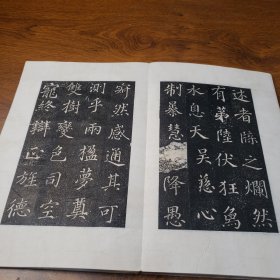 述者之爛然
有第陸伏狂象
水息天吳慈心
制暴慧降愚
然感通其可
測乎兩楹夢奠
雙樹變色司空
寵終辯正旌德